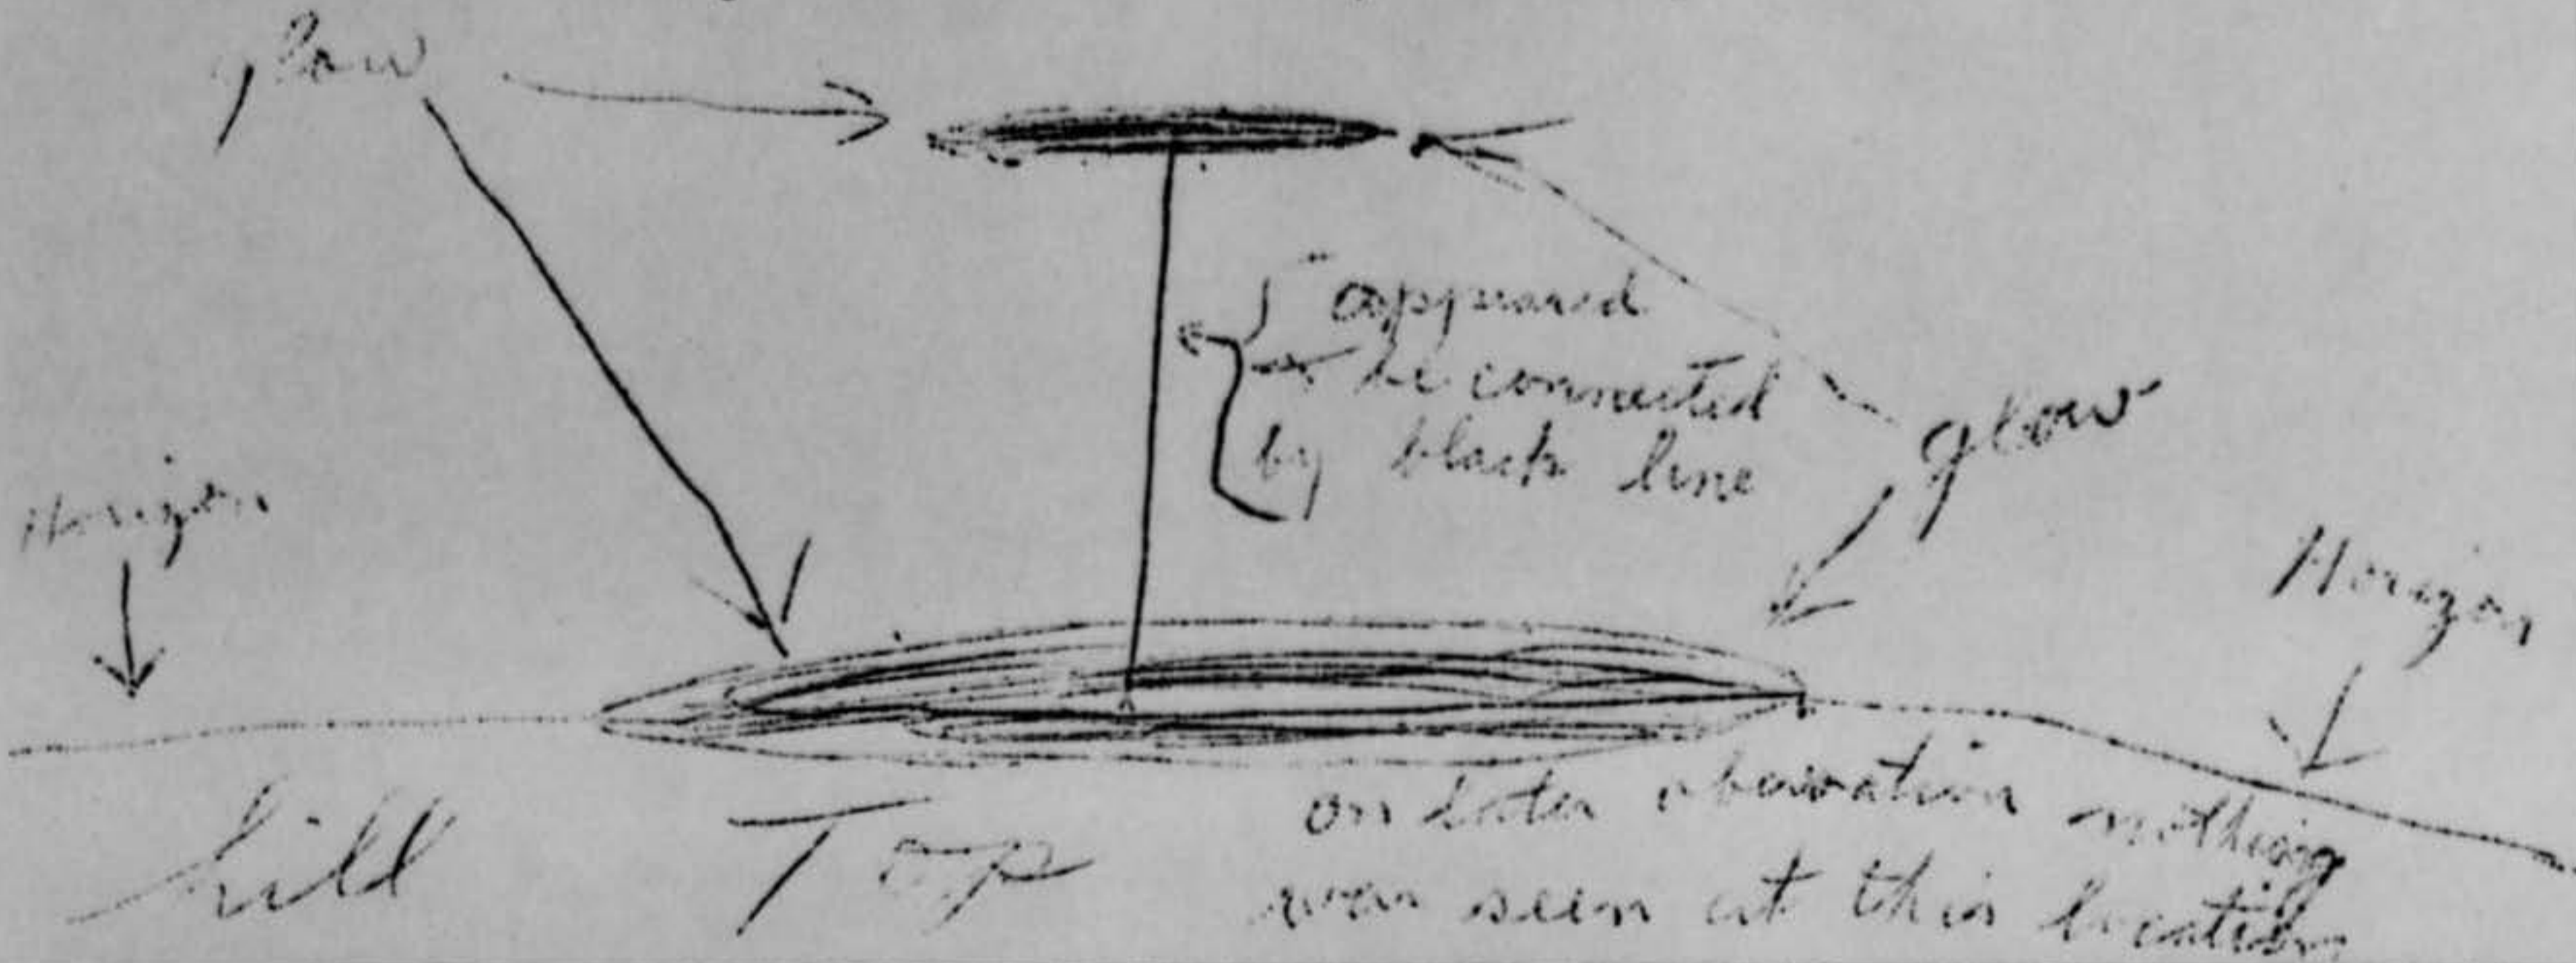 glow
appeared
to be connected
by black line
glow
Horizon
Horizon
hill Top
on later observation nothing
was seen at this location